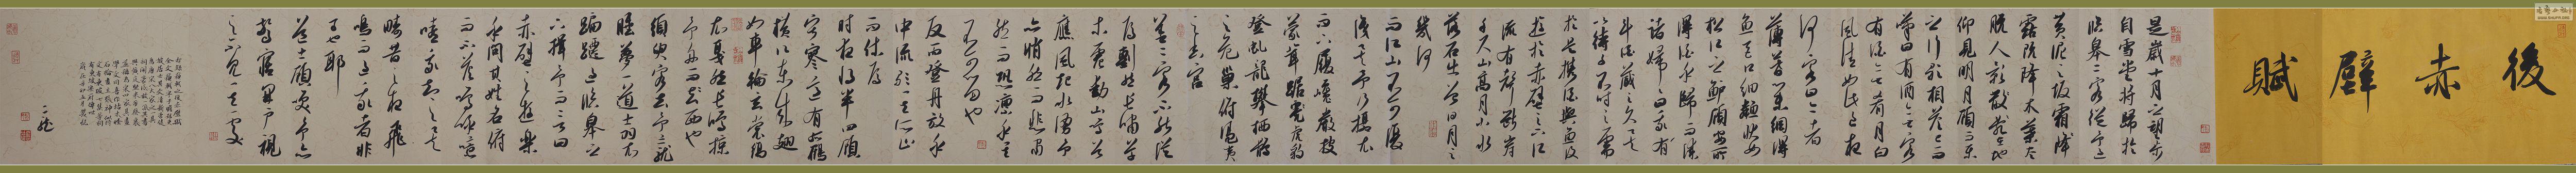 後赤壁賦
是歲十月之望步
自雪堂將歸於
臨皋二客從予過
黃泥之坂霜
露既降木葉盡
脫人影在地
仰見明月顧而樂
之行歌相答已而
嘆曰有客
有酒亡肴月白
風清如此良夜
何客曰今者
薄暮舉網得
魚巨口細鱗狀如
松江之鱸顧安所
得酒乎歸而謀
諸婦婦曰我有
斗酒藏之久矣
以待子不時之需
於是攜酒與魚復
遊於赤壁之下江
流有聲斷岸
千尺山高月小水
落石出曾日月之
幾何
而江山不可復
識矣予乃攝衣
而上履巉巖披
蒙茸踞虎豹
登虬龍攀棲鶻
之危巢俯馮夷
之幽宮
蓋二客不能從
焉劃然長嘯草
木震動山鳴谷
應風起水湧予
亦悄然而悲肅
然而恐凜乎其
不可留也
反而登舟放乎
中流聽其所止
而休焉
時夜將半四顧
寂寥適有孤鶴
橫江東來翅
如車輪玄裳縞
衣戛然長鳴掠
予舟而西也
須臾客去予亦就
睡夢一道士羽衣
蹁躚過臨皋之
下揖予而言曰
赤壁之遊樂
乎問其姓名俯
而不答嗚呼噫
嘻我知之矣
疇昔之夜飛
鳴而過我者非
子也耶
道士顧笑予亦
驚寤開戶視
之不見其處